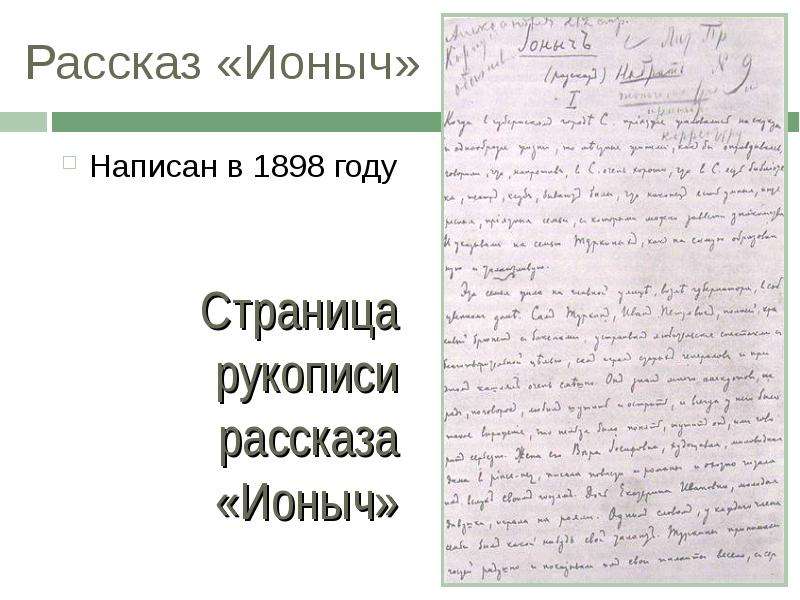 Рассказ «Ионыч»
Написан в 1898 году
Страница
рукописи
рассказа
«Ионыч»
Iонычъ
(разсказъ) Набрать
I
Когда в губернском городе С. приезжие жаловались на скуку
и однообразие жизни, то местные жители, как бы оправдываясь,
говорили, что, напротив, в С. очень хорошо, что в С. есть библиоте
ка, театр, клуб, бывают балы, что наконец есть умные, инте
ресные, приятные семьи, с которыми можно завести знакомства.
И указывали на семью Туркиных, как на самую образован
ную и талантливую.
Эта семья жила на главной улице, возле губернатора, в соб
ственном доме. Сам Туркин, Иван Петрович, полный, кра
сивый брюнет с бакенами, устраивал любительские спектакли с
благотворительной целью, сам играл старых генералов и при
этом кашлял очень смешно. Он знал много анекдотов, ша
рад, поговорок, любил шутить и острить, и всегда у него было
такое выражение, что нельзя было понять, шутит он, или гово
рит серьезно. Жена его Вера Иосифовна, худощавая, миловидная
дама в pince-nez, писала повести и романы и охотно читала
их вслух своим гостям. Дочь Екатерина Ивановна, молодая
девушка, играла на рояли. Одним словом, у каждого члена
семьи был какой нибудь свой талант. Туркины принимали
гостей радушно и показывали им свои таланты весело, с сер